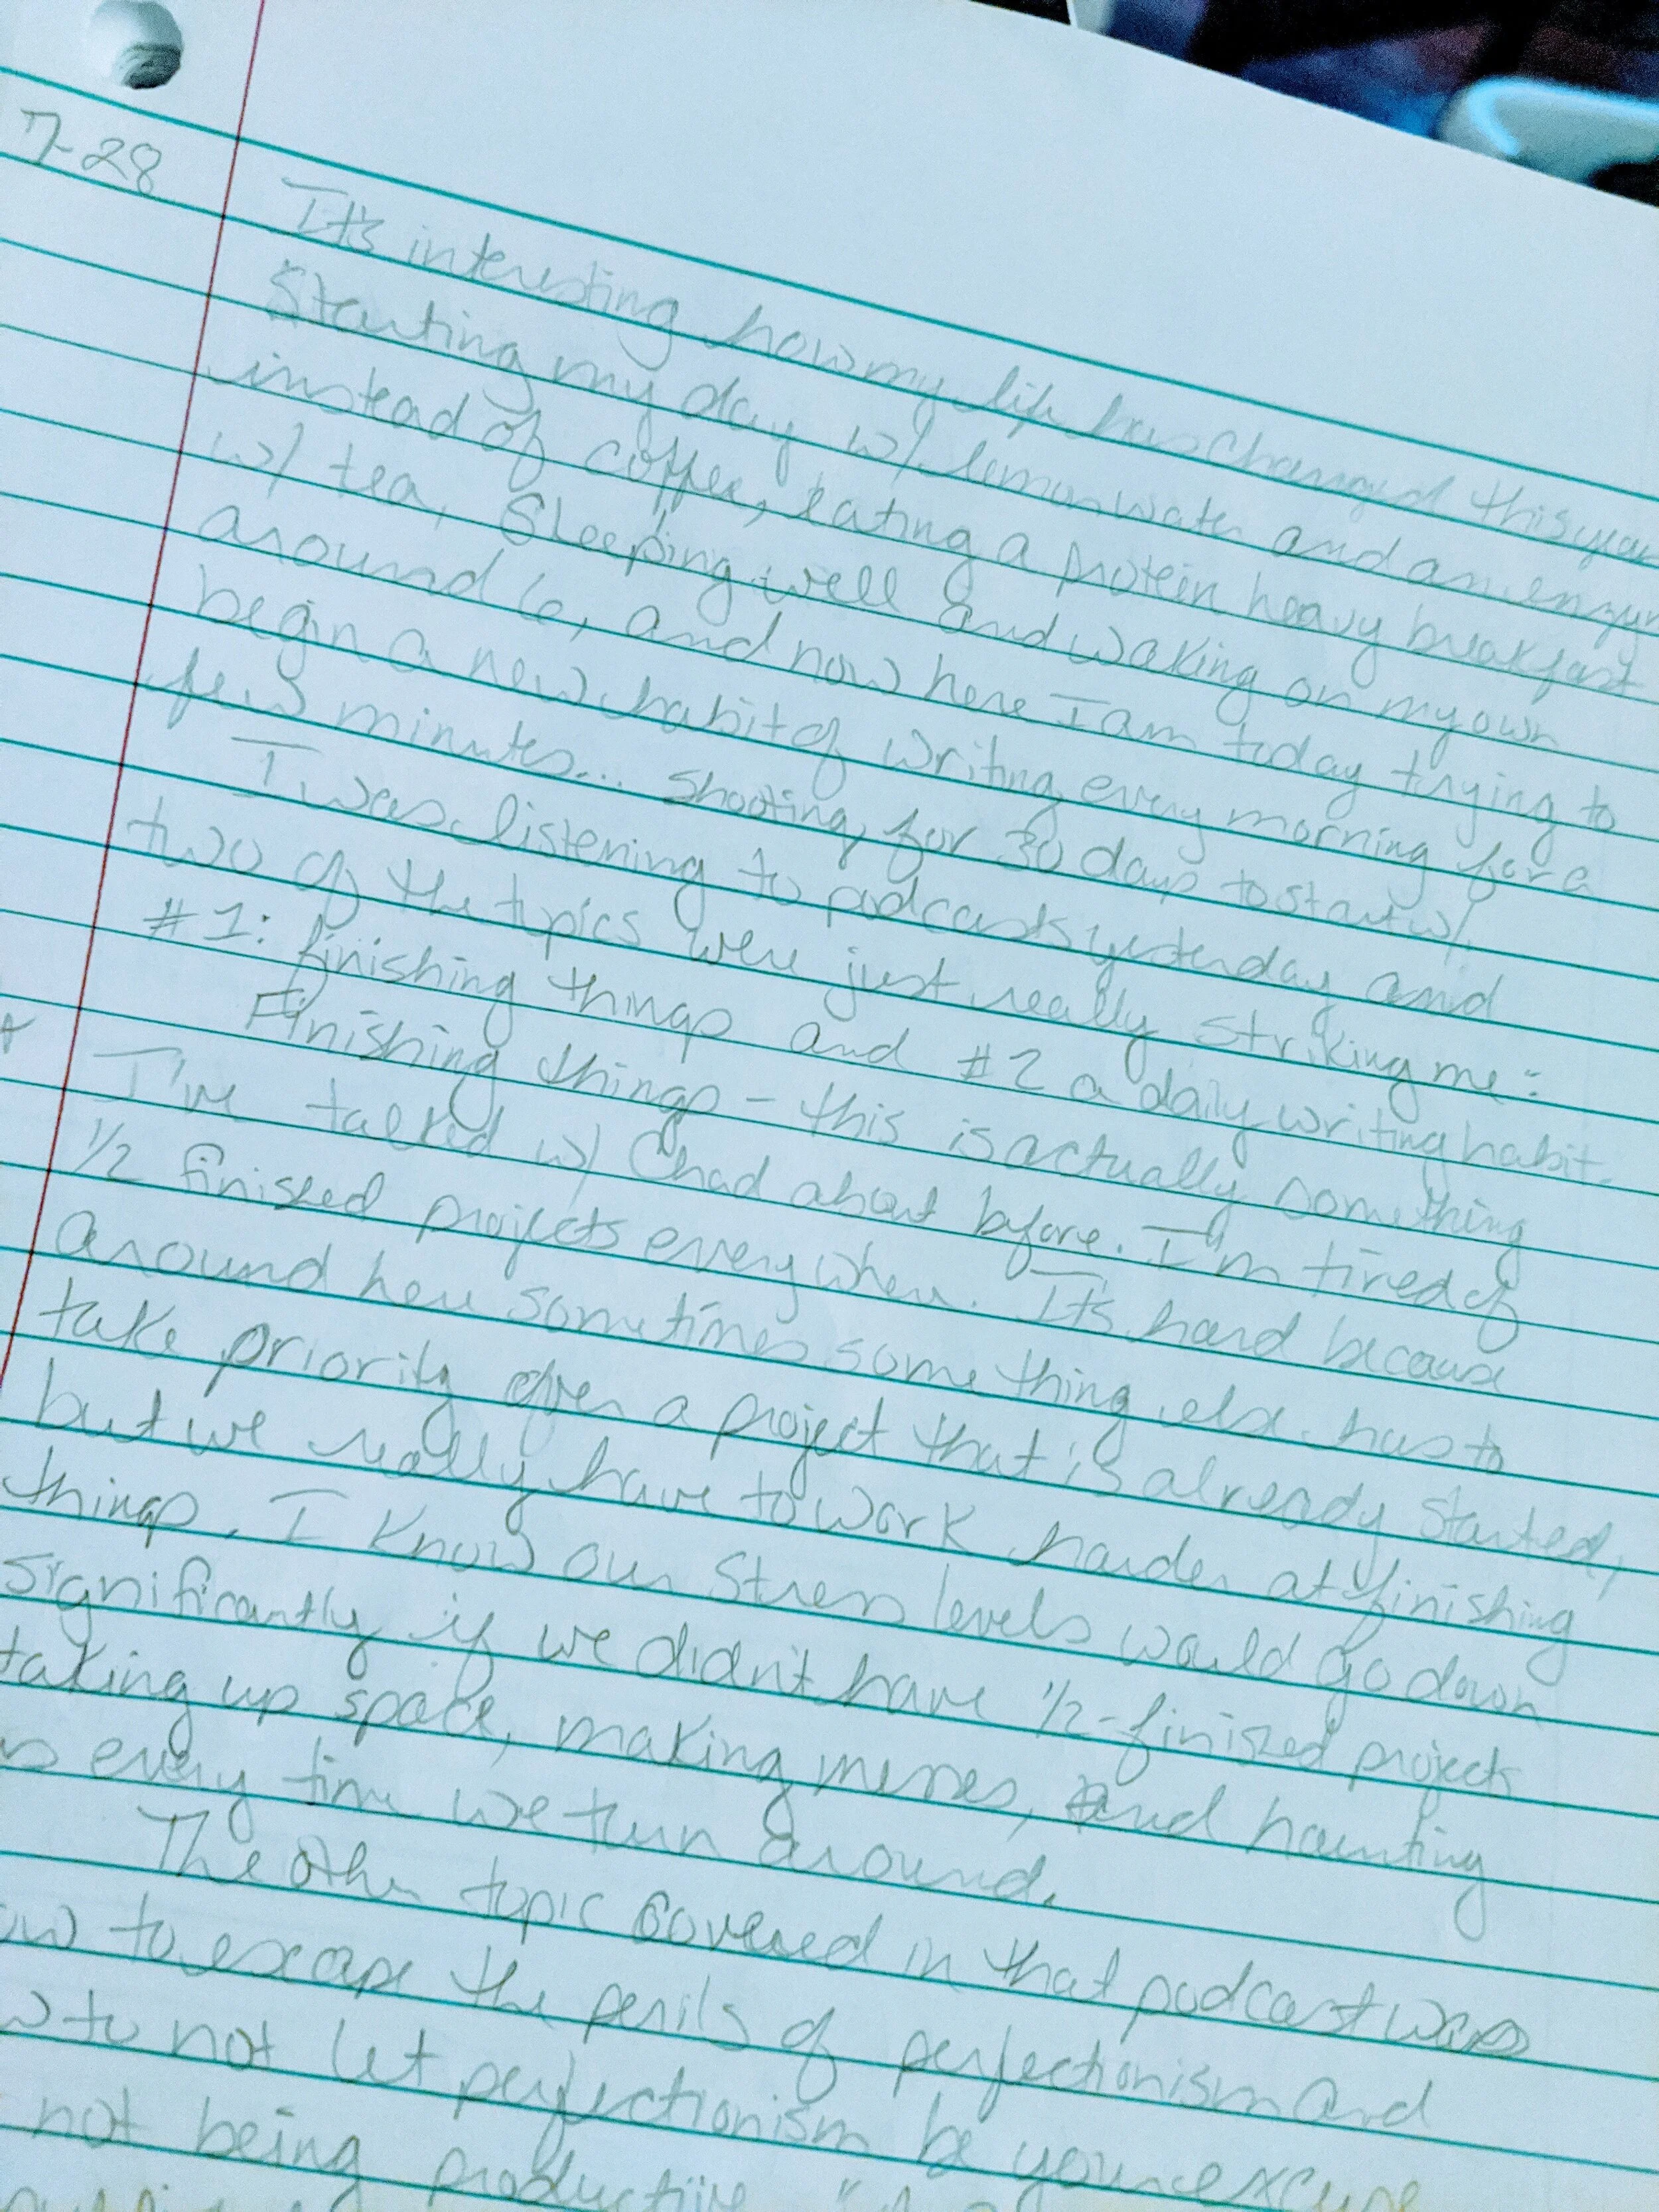 7-28
It's interesting how my life has changed this year
Starting my day w/ lemon water and an enzym
instead of coffee, eating a protein heavy breakfast
w/ tea, Sleeping well and waking on my own
around 6, and now here I am today trying to
begin a new habit of writing every morning for a
few minutes... shooting for 30 days to start w/.
I was listening to podcasts yesterday and
two of the topics were just really striking me:
#1: finishing things and #2 a daily writing habit.
Finishing things - this is actually something
I've talked w/ Chad about before. I'm tired of
1/2 finished projects everywhere. It's hard because
around here sometimes something else has to
take priority over a project that is already started,
but we really have to work harder at finishing
things. I know our stress levels would go down
significantly if we didn't have 1/2-finished projects
taking up space, making messes, and haunting
us every time we turn around.
The other topic covered in that podcast was
ow to escape the perils of perfectionism and
w to not let perfectionism be your excuse
not being productive.